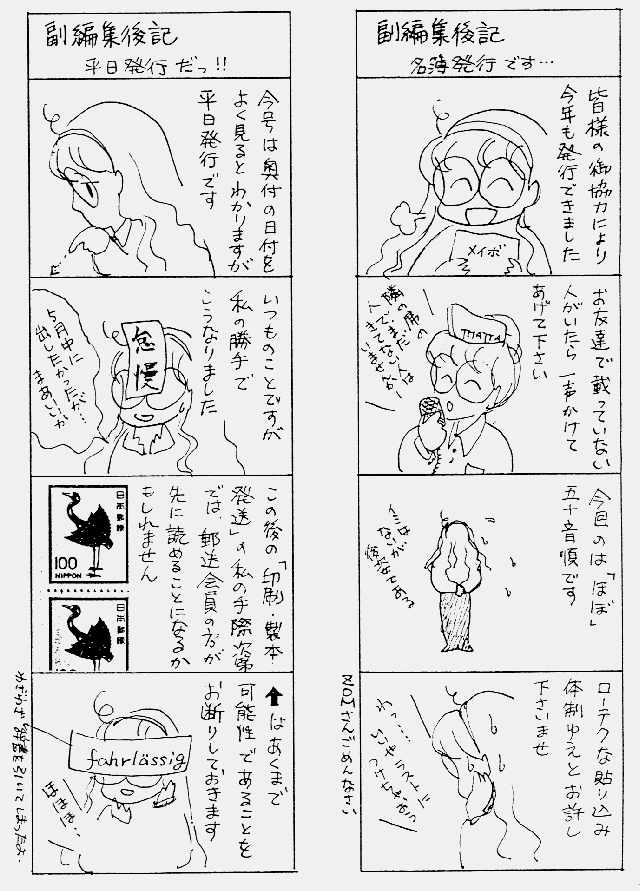 副編集後記
名簿発行です…
皆様の御協力により
今年も発行できました
メイボ
お友達で載っていない
人がいたら一声かけて
あげて下さい
隣の席の
人で、まだ
きてない人は
いませんかー
今回のは「ほぼ」
五十音順です
イミは
ないが
後姿であって
ローテクな貼り込み
体制ゆえとお許し
下さいませ
わっ…
いやラストに
ZOMさんごめんなさい
副編集後記
平日発行だっ!!
今号は奥付の日付を
よく見るとわかりますが
平日発行です
いつものことですが
私の勝手で
こうなりました
怠慢
5月中に
出したかったが…
まあいいか
この後の「印刷・製本・
発送」の私の手際次第
では、郵送会員の方が
先に読めることになるか
もしれません
日本郵便
100
NIPPON
日本郵便
↑はあくまで
可能性であることを
お断りしておきます
fahrlässig
ほほほ…
わざわざ辞書を引いてしまったよ